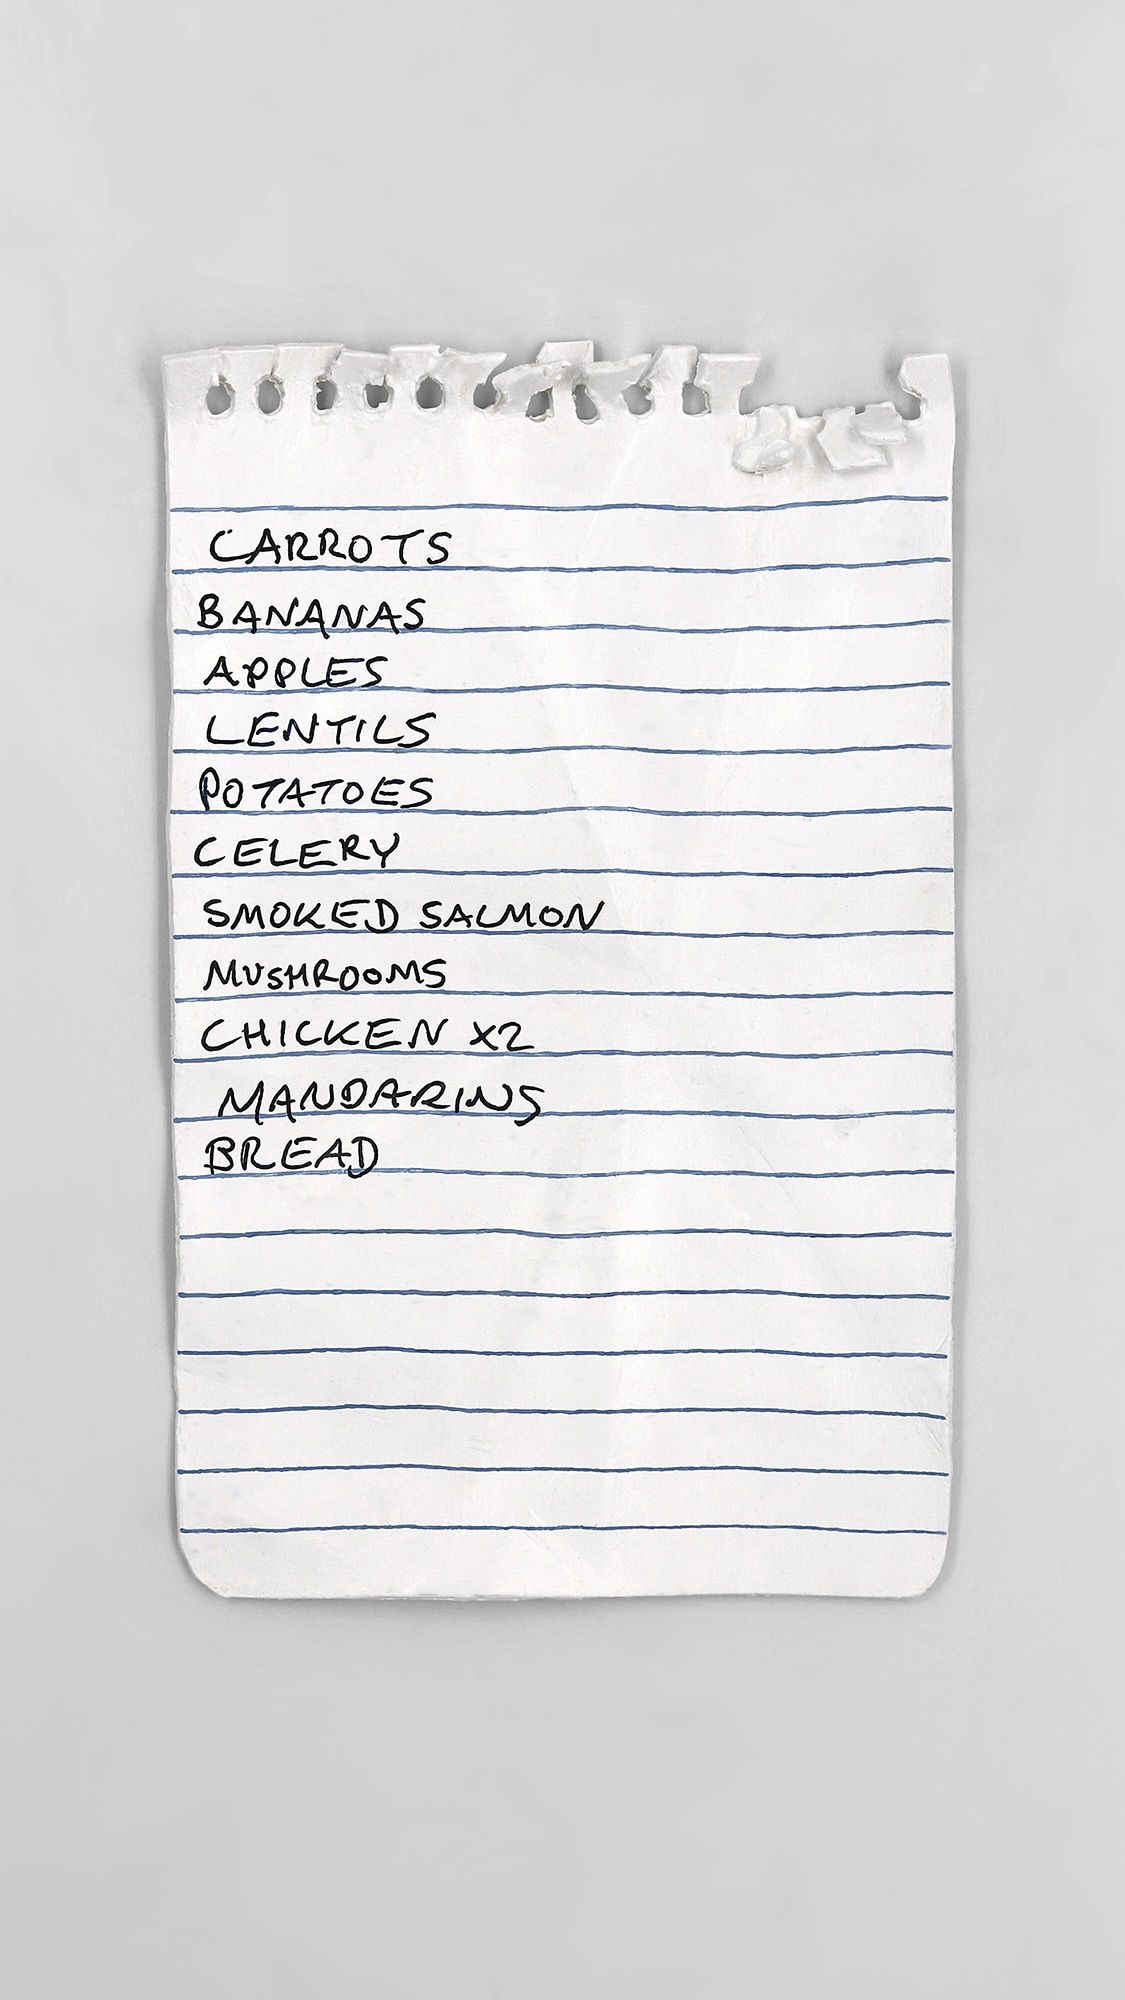 CARROTS
BANANAS
APPLES
LENTILS
POTATOES
CELERY
SMOKED SALMON
MUSHROOMS
CHICKEN X2
MANDARINS
BREAD